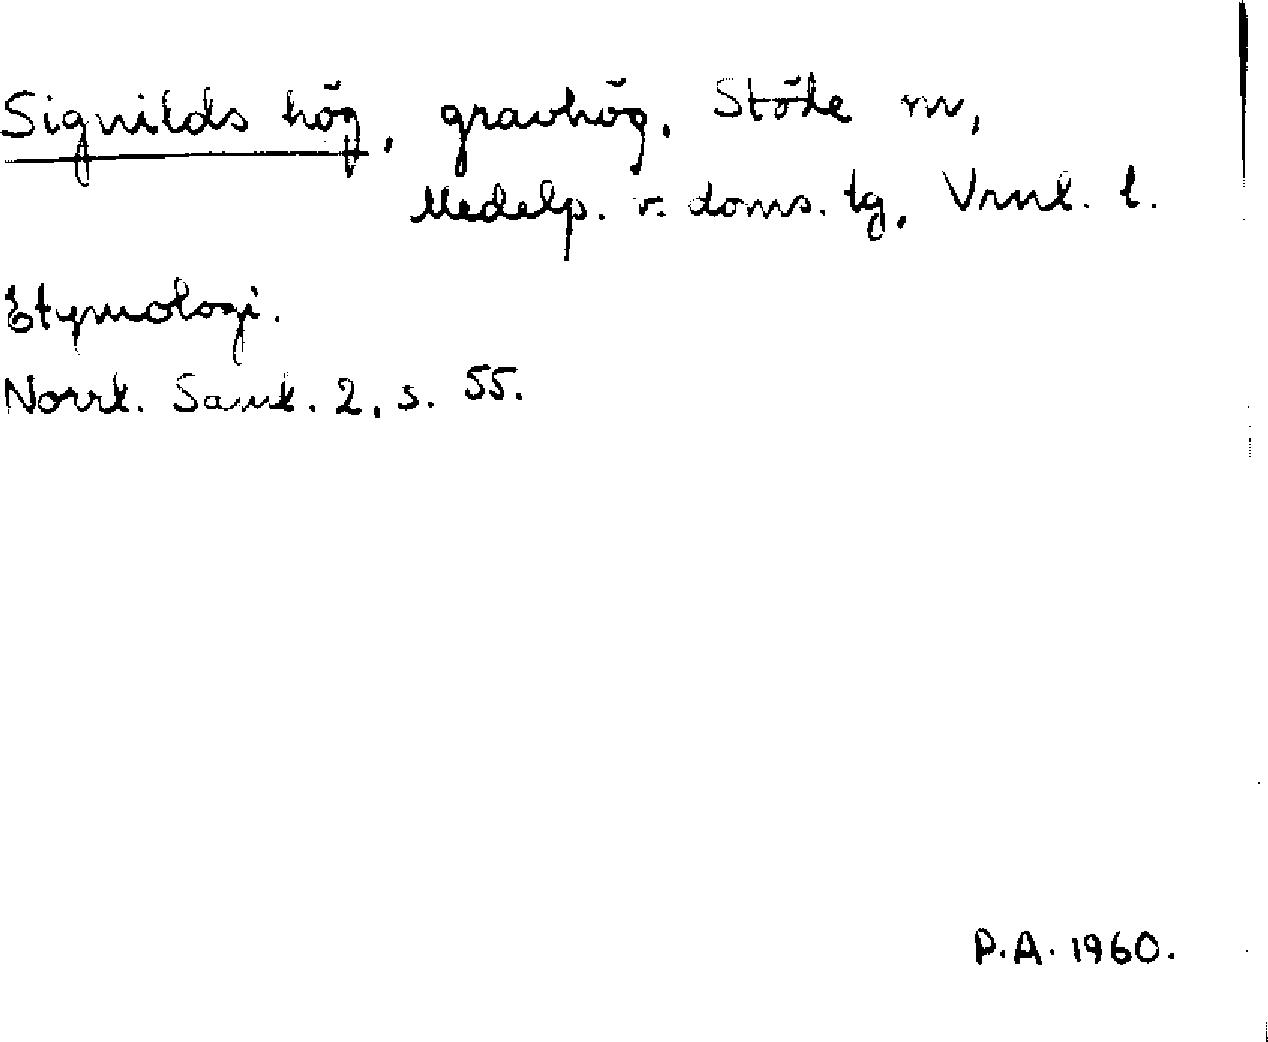 Signilds hög, gravhög. Stöde sn,
Medelp. v. doms. tg, Vrnl. l.
Etymologi.
Norrl. Saml. 2, s. 55.
P.A. 1960.